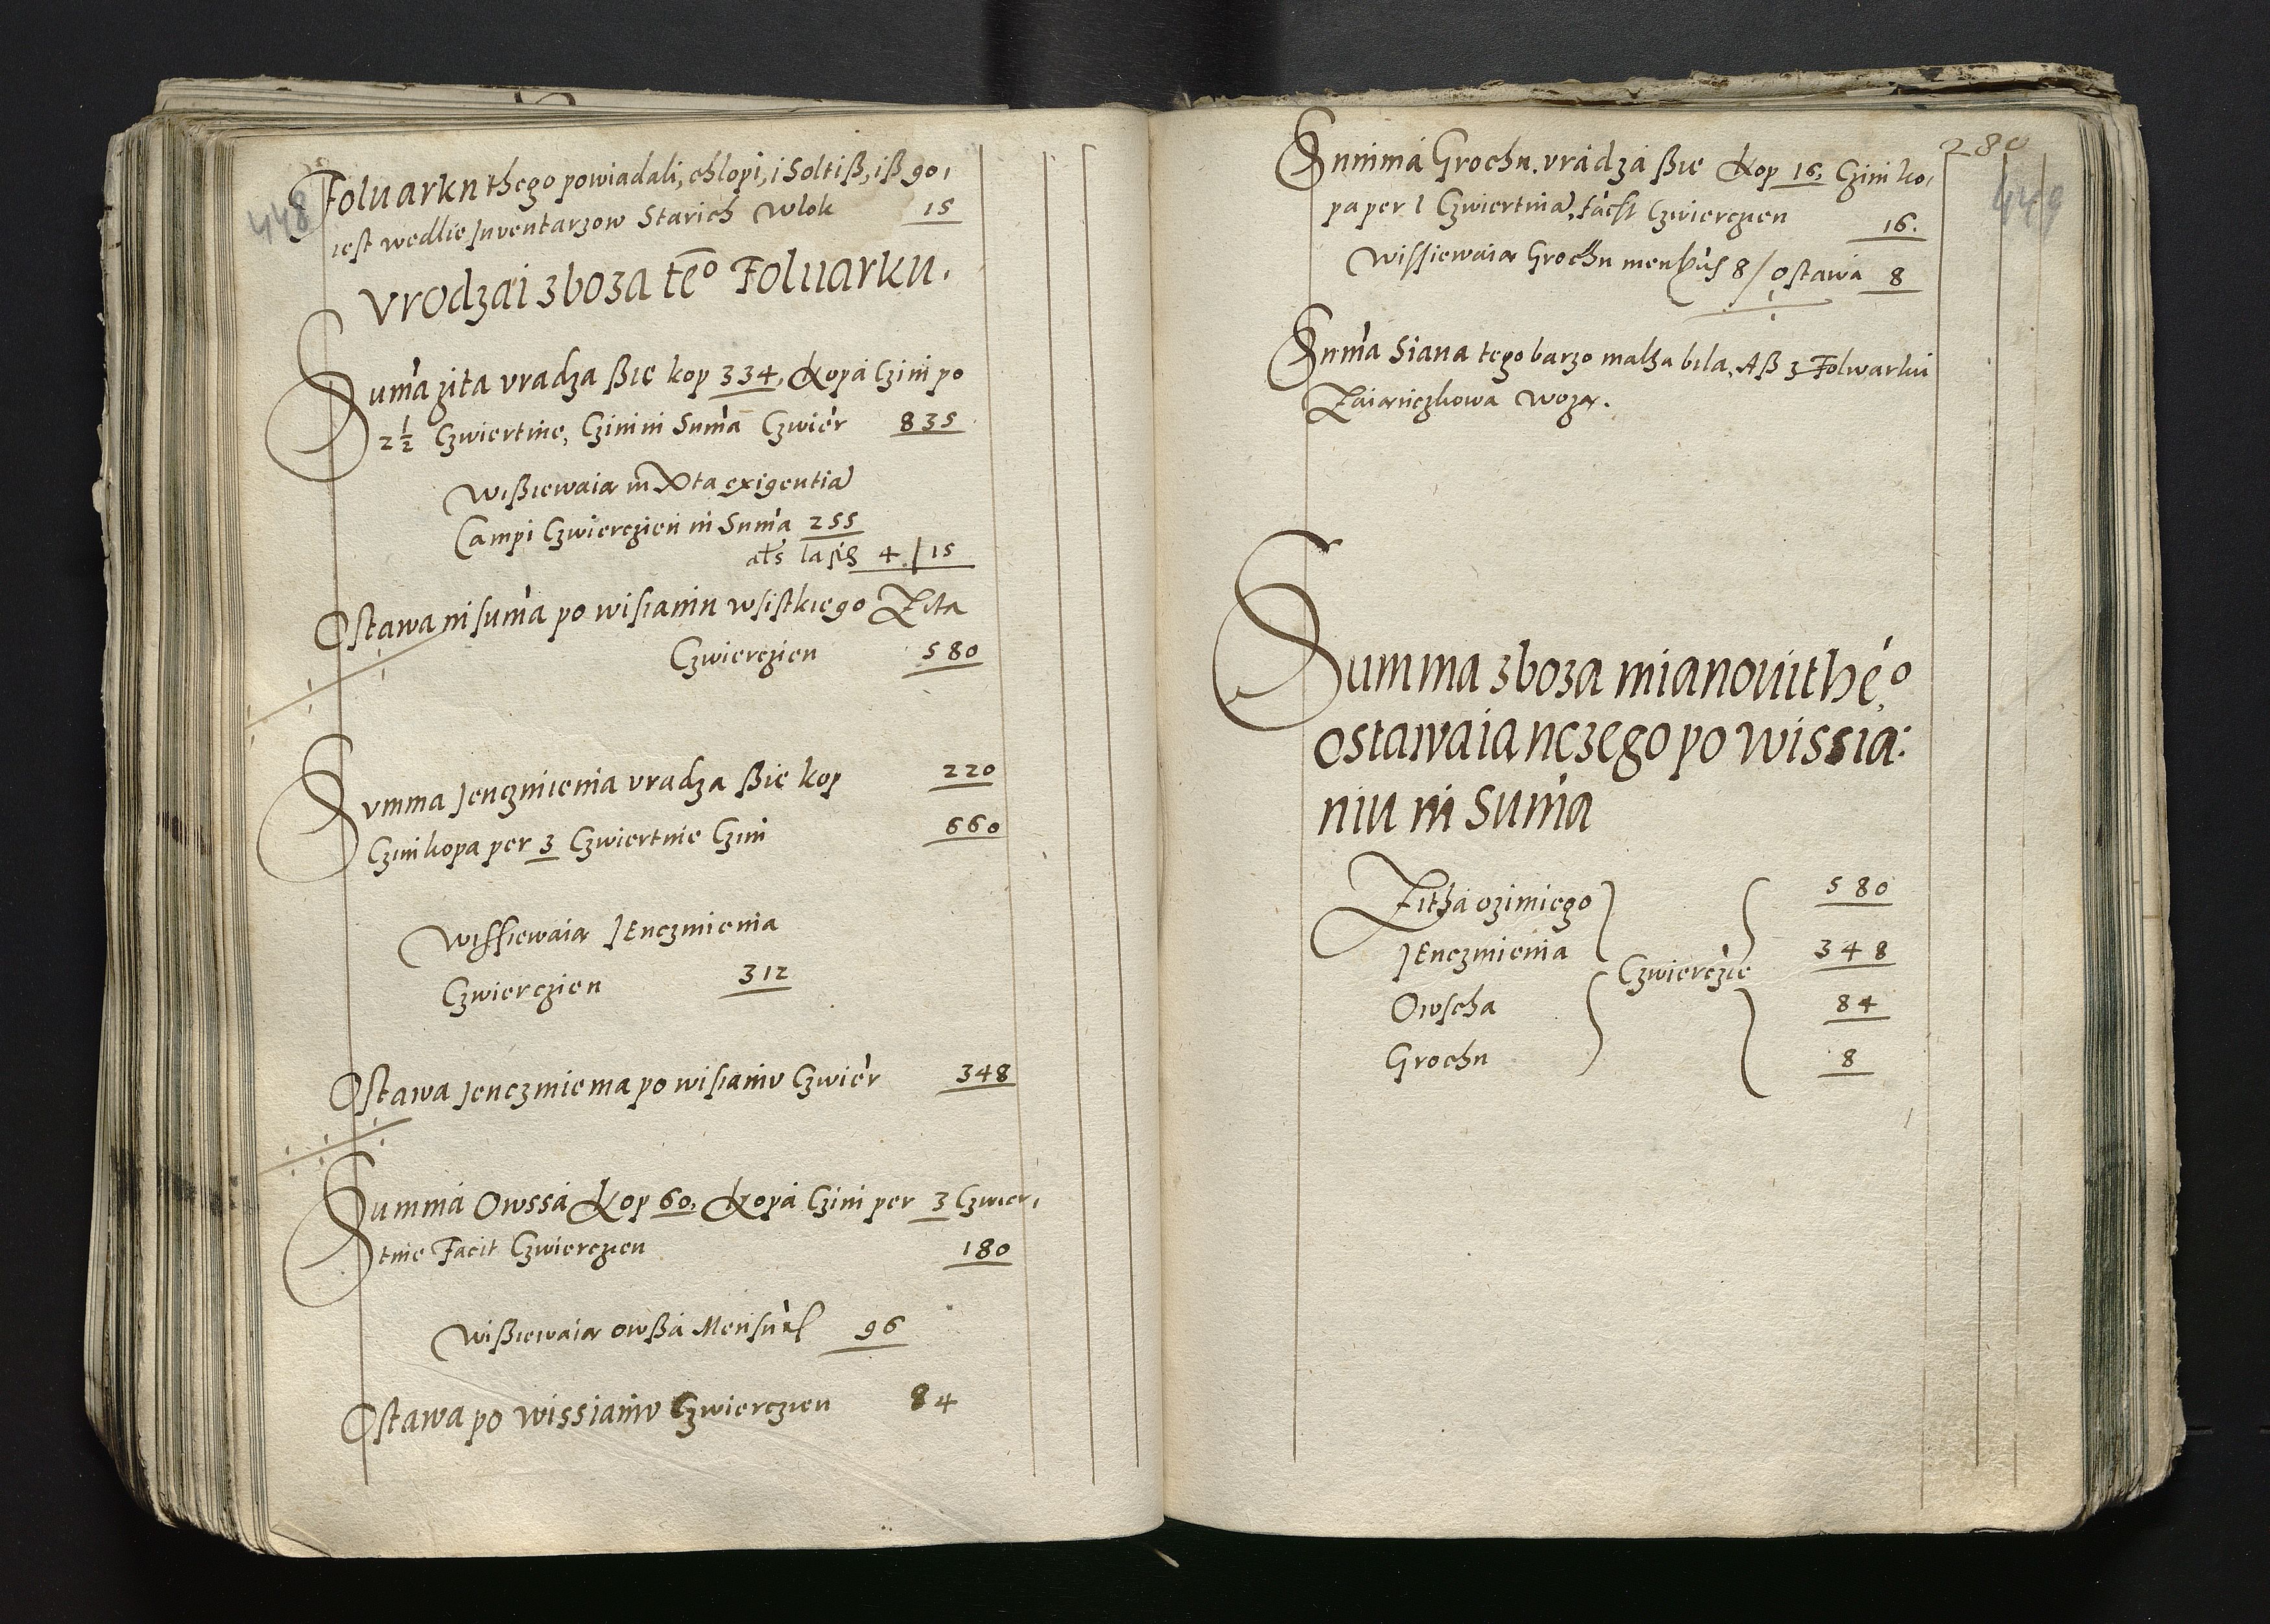 448
Foluarku thego powiadali, chlopi, i Soltiß, iß go,
iest wedlie Inventarzow Starich Wlok 15
Vrodzai zboza te͞o Foluarku.
Sum̄a zita vradza ßie kop 334, Kopa Czini po
2½ Czwiertnie, Czini in Sum̄a Czwier 835
Wißiewaia in Xta exigentia
Campi Czwierczien in Sum̄a 255
als lasz 4 / 15
Ostawa in sum̄a po wisianiu wsistkiego Zita
Czwierczien 580
Summa Jenczmienia vradza ßie kop 220
Czini kopa per 3 Czwiertnie Czini 660
Wissiewaia JEnczmienia
Czwierczien 312
Ostawa Jenczmienia po wisianiu Czwier 348
Summa Owssa Kop 60, Kopa Czini per 3 Czwier,
tnie Facit Czwierczien 180
Wißiewaia owßa Mensur 96
Ostawa po wissianiu Czwierczien 84
280
449
Summa Grochu vradza ßie Kop 16, Czini ko,
pa per 1 Czwiertnia, facit Czwierczien 16.
Wissiewaia Grochu mensur 8 / Ostawa 8
Sum̄a Siana tego barzo malha bila, Aß z Folwarku
Zaianczkowa woza.
Summa zboza mianovithe͞o,
ostawaianczego po wissia:
niu in Sum̄a
Zitha ozimiego 580
JEnczmienia 348
Czwierczie
Owscha 84
Grochu 8